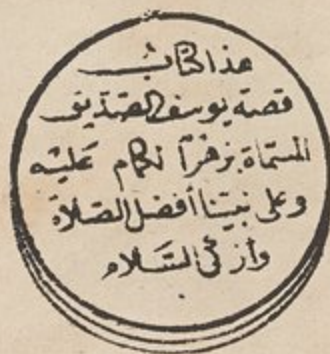 هذا كتاب
قصة يوسف الصديق
المسماة بزهر الكمام عليه
وعلى نبينا أفضل الصلاة
وأزكى السلام